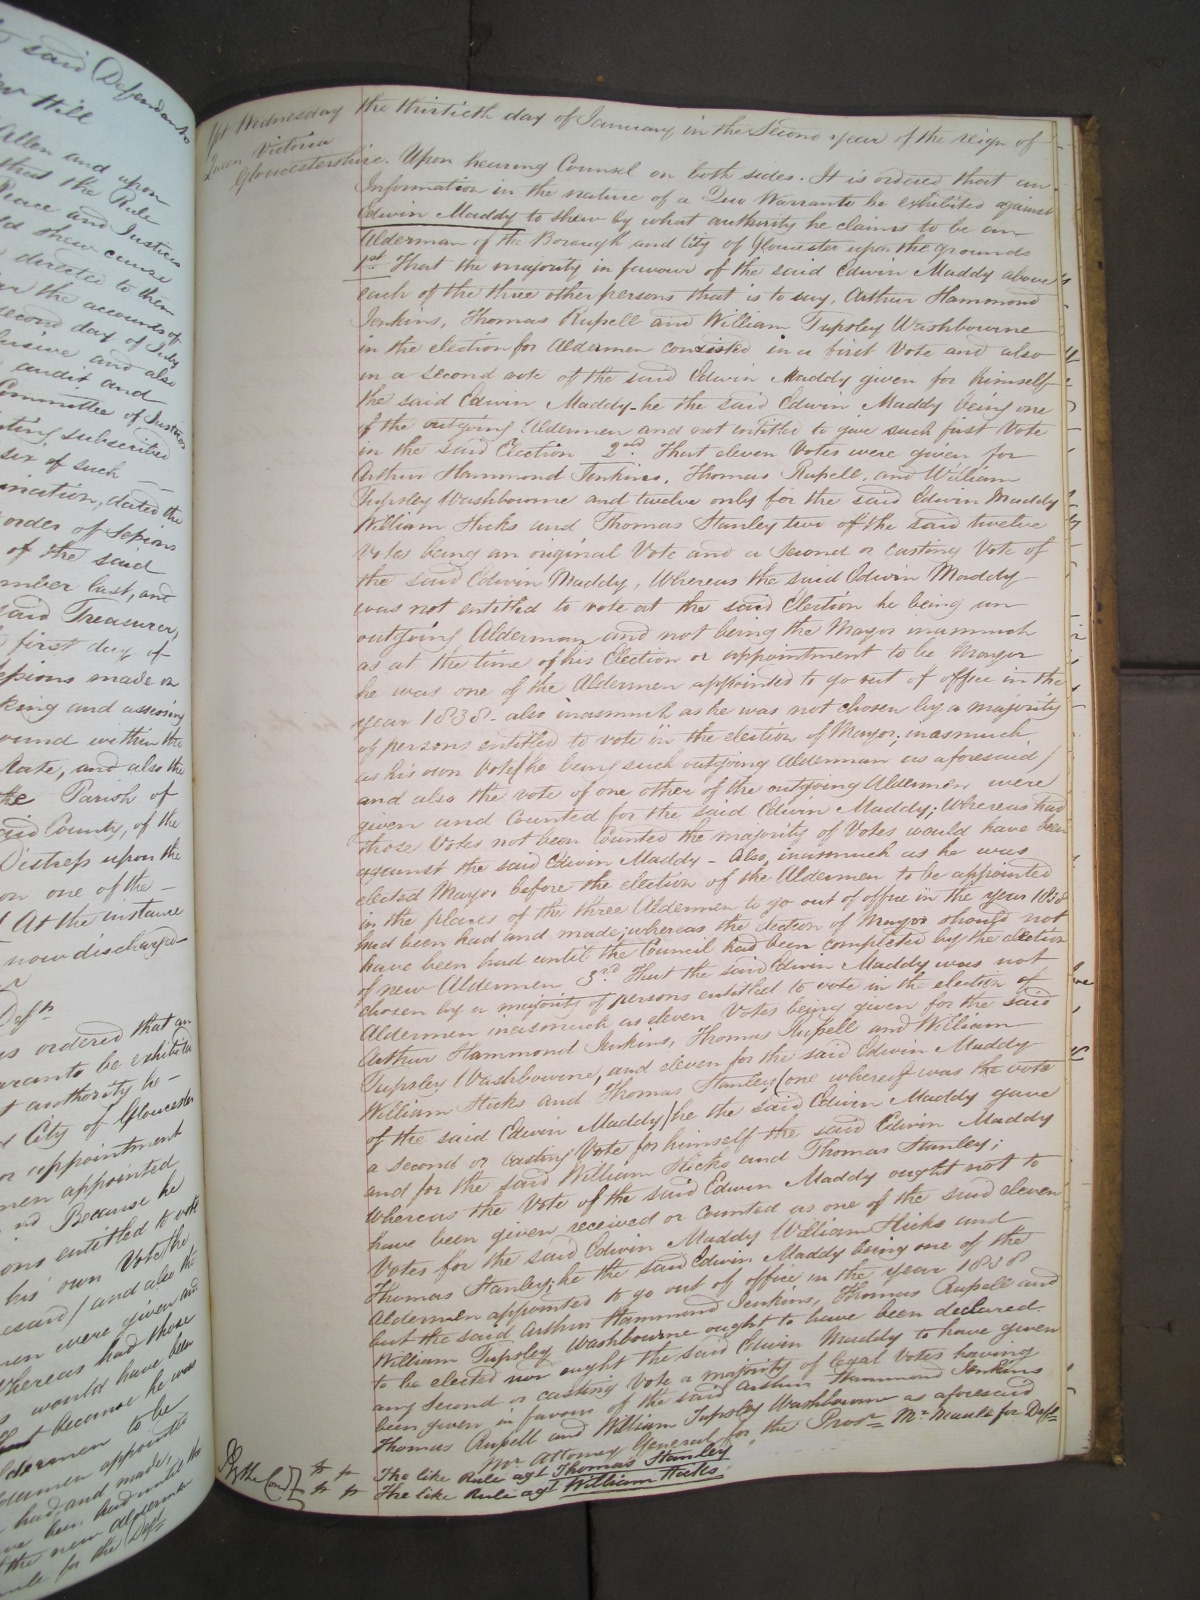 said Defendants
Hill
Allen and upon
that the Rule
Peace and Justices
shew cause
directed to them
the accounts of
second day of July
and also
audit and
Committee of Justices
subscribed
six of such
nination, dated the
order of Sessions
of the said
mber last, and
said Treasurer,
first day of
essions made on
king and assessing
ound within the
Rate, and also the
the Parish of
said County, of the
Distress upon the
on one of the
At the instance
now discharged
Deft
is ordered that an
arranto be exhibited
t authority he
City of Gloucester
or appointment
men appointed
Because he
ons entitled to vote
his own Vote (he
esaid) and also the
men were given and
Whereas had those
would have been
Because he was
ldermen to be
Aldermen appointed
had, and made,
have been had until the
the new Aldermen
for the Deft
Wednesday the thirtieth day of January in the Second year of the reign of
Queen Victoria
Gloucestershire. Upon hearing Counsel on both sides. It is ordered that an
Information in the nature of a Quo Warranto be exhibited against
Edwin Maddy to shew by what authority he claims to be an
Alderman of the Borough and City of Gloucester upon the grounds
1st. That the majority in favour of the said Edwin Maddy above
each of the three other persons that is to say, Arthur Hammond
Jenkins, Thomas Russell and William Tupsley Washbourne
in the election for Aldermen consisted in a first Vote and also
in a second vote of the said Edwin Maddy given for himself
the said Edwin Maddy - he the said Edwin Maddy being one
of the outgoing Aldermen and not entitled to give such first Vote
in the said Election 2nd. That eleven Votes were given for
Arthur Hammond Jenkins, Thomas Russell, and William
Tupsley Washbourne and twelve only for the said Edwin Maddy
William Hicks and Thomas Stanley two of the said twelve
Votes being an original Vote and a Second or casting Vote of
the said Edwin Maddy, Whereas the said Edwin Maddy
was not entitled to vote at the said Election he being an
outgoing Alderman and not being the Mayor inasmuch
as at the time of his Election or appointment to be Mayor
he was one of the Aldermen appointed to go out of office in the
year 1838 - also inasmuch as he was not chosen by a majority
of persons entitled to vote in the election of Mayor; inasmuch
as his own Vote (he being such outgoing Alderman as aforesaid)
and also the vote of one other of the outgoing Aldermen were
given and Counted for the said Edwin Maddy; Whereas had
those Votes not been Counted the majority of Votes would have been
against the said Edwin Maddy - Also, inasmuch as he was
elected Mayor before the election of the Aldermen to be appointed
in the places of the three Aldermen to go out of office in the year 1838
had been had and made; whereas the election of Mayor should not
have been had until the Council had been completed by the election
of new Aldermen 3rd That the said Edwin Maddy was not
chosen by a majority of persons entitled to vote in the election of
Aldermen inasmuch as eleven Votes being given for the said
Arthur Hammond Jenkins, Thomas Russell and William
Tupsley Washbourne, and eleven for the said Edwin Maddy
William Hicks and Thomas Stanley (one whereof was the vote
of the said Edwin Maddy) he the said Edwin Maddy gave
a second or casting Vote for himself the said Edwin Maddy
and for the said William Hicks and Thomas Stanley;
Whereas the Vote of the said Edwin Maddy ought not to
have been given received or counted as one of the said eleven
Votes for the said Edwin Maddy William Hicks and
Thomas Stanley; he the said Edwin Maddy being one of the
Aldermen appointed to go out of office in the year 1838
but the said Arthur Hammond Jenkins, Thomas Russell and
William Tupsley Washbourne ought to have been declared
to be elected nor ought the said Edwin Maddy to have given
any Second or casting Vote a majority of legal Votes having
been given in favour of the said Arthur Hammond Jenkins
Thomas Russell and William Tupsley Washbourne as aforesaid
Mr Attorney General for the Prosr Mr Maule for Deft
The like Rule agt Thomas Stanley
By the Court The like Rule agt William Hicks